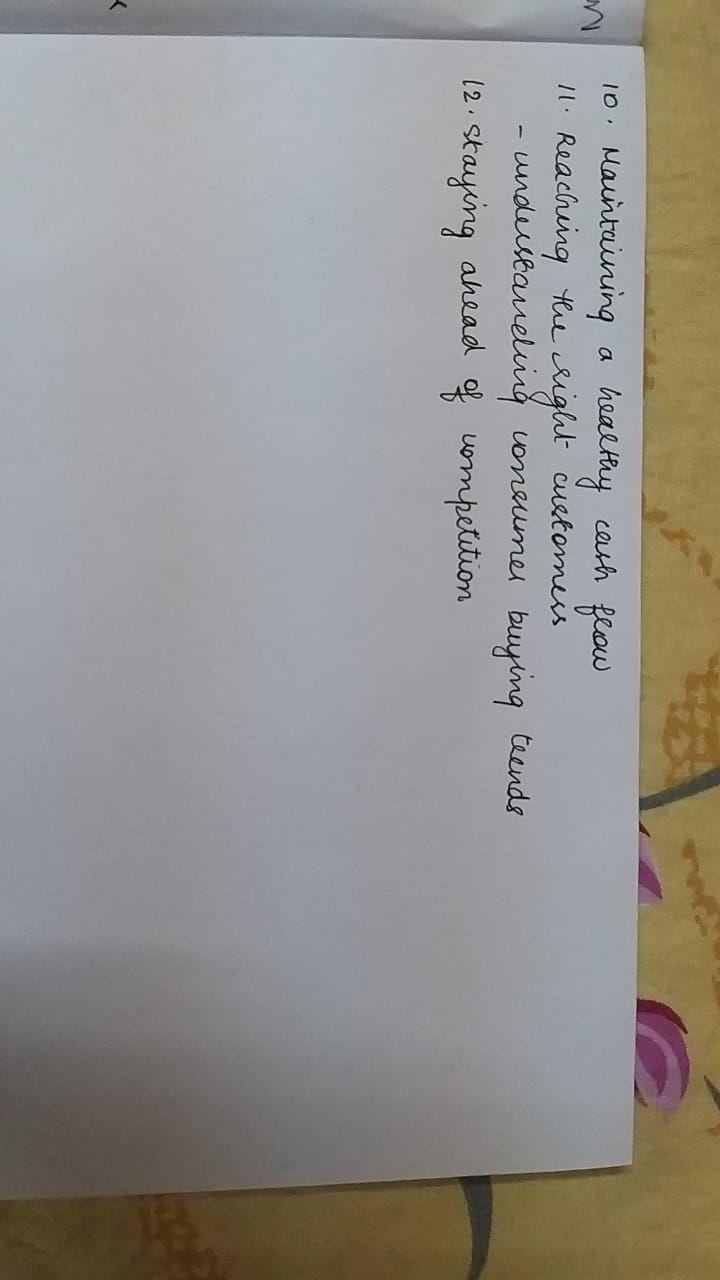 10. Maintaining a healthy cash flow
11. Reaching the right customers
- understanding consumer buying trends
12. Staying ahead of competition